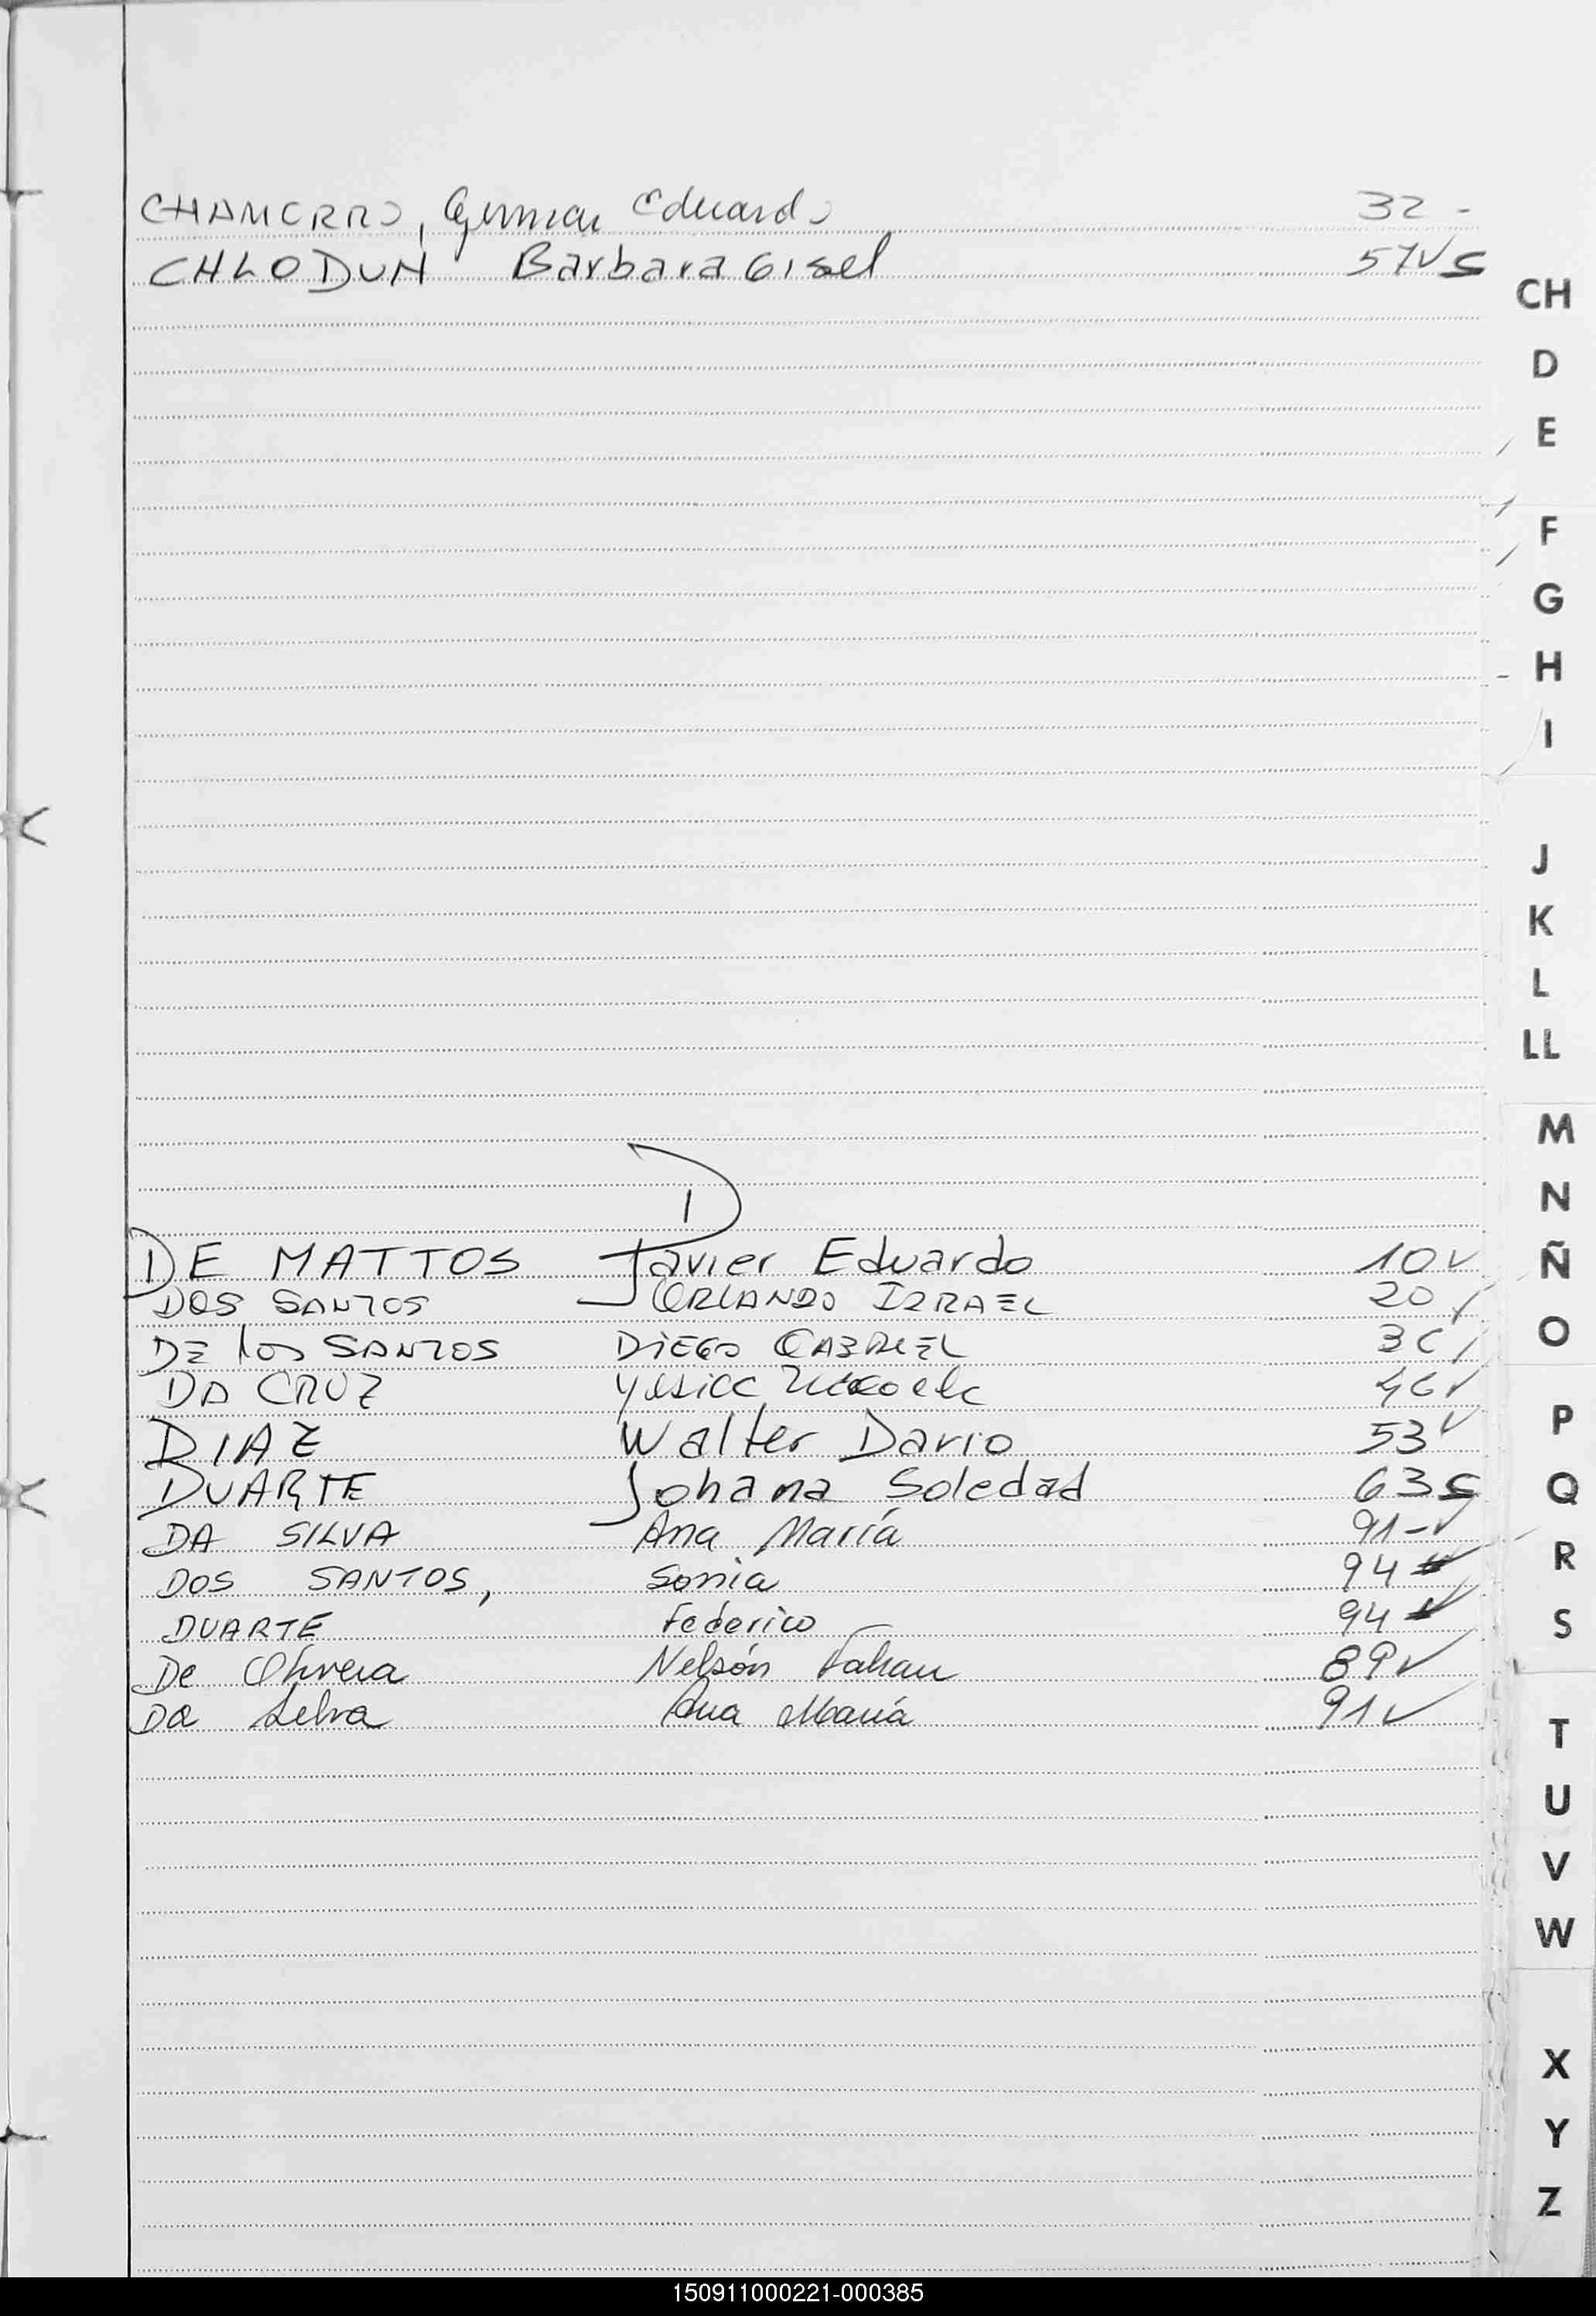 CHAMORRO, German Eduardo 32 -
CHLODUN Barbara Gisel 57✓ S
CH
D
E
F
G
H
I
J
K
L
LL
M
N
Ñ
O
P
Q
R
S
T
U
V
W
X
Y
Z
D
DE MATTOS Javier Eduardo 10 ✓
DOS SANTOS ORLANDO IZRAEL 20 ✓
DE los SANTOS DIEGO GABRIEL 36 ✓
DA CRUZ Yesica 46 ✓
DIAZ Walter Dario 53 ✓
DUARTE Johana Soledad 63 S
DA SILVA Ana María 91 - ✓
DOS SANTOS, Sonia 94 ✓
DUARTE Federico 94 ✓
De Olivera Nelsón Fabian 89 ✓
Da Silva Ana María 91 ✓
150911000221-000385